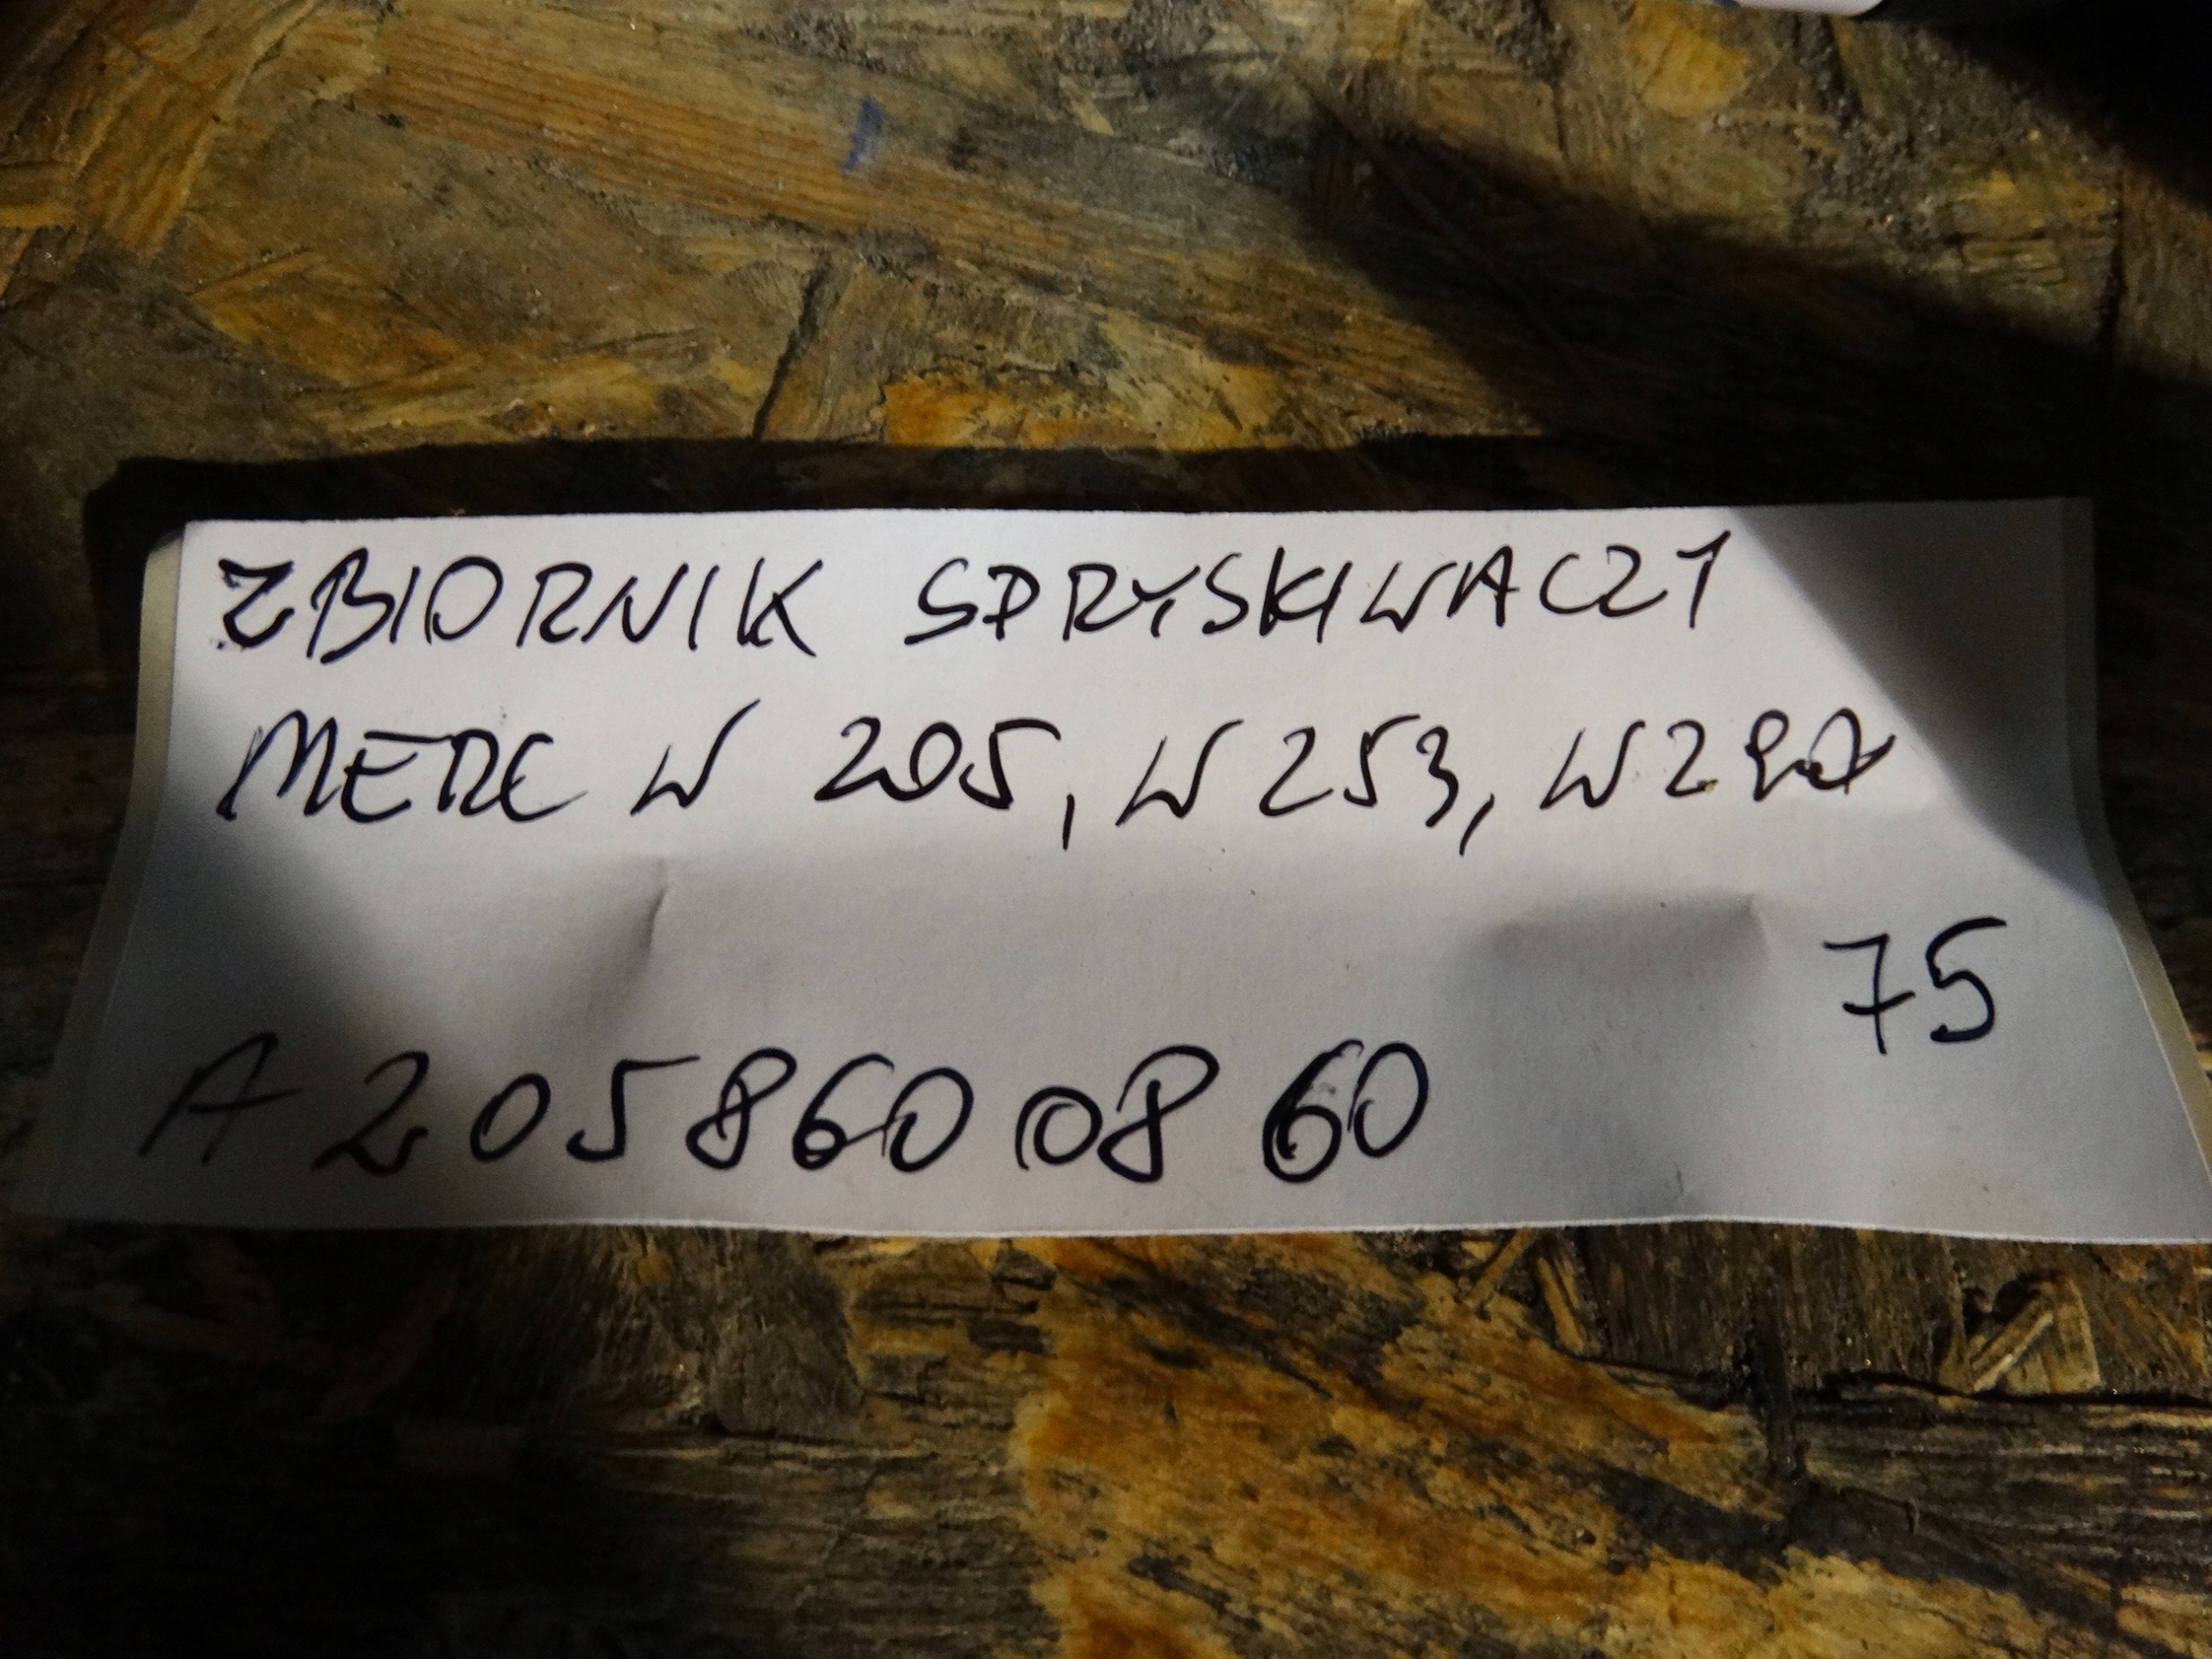 ZBIORNIK SPRYSKIWACZY
MERC W 205, W 253, W
75
A 205 860 08 60